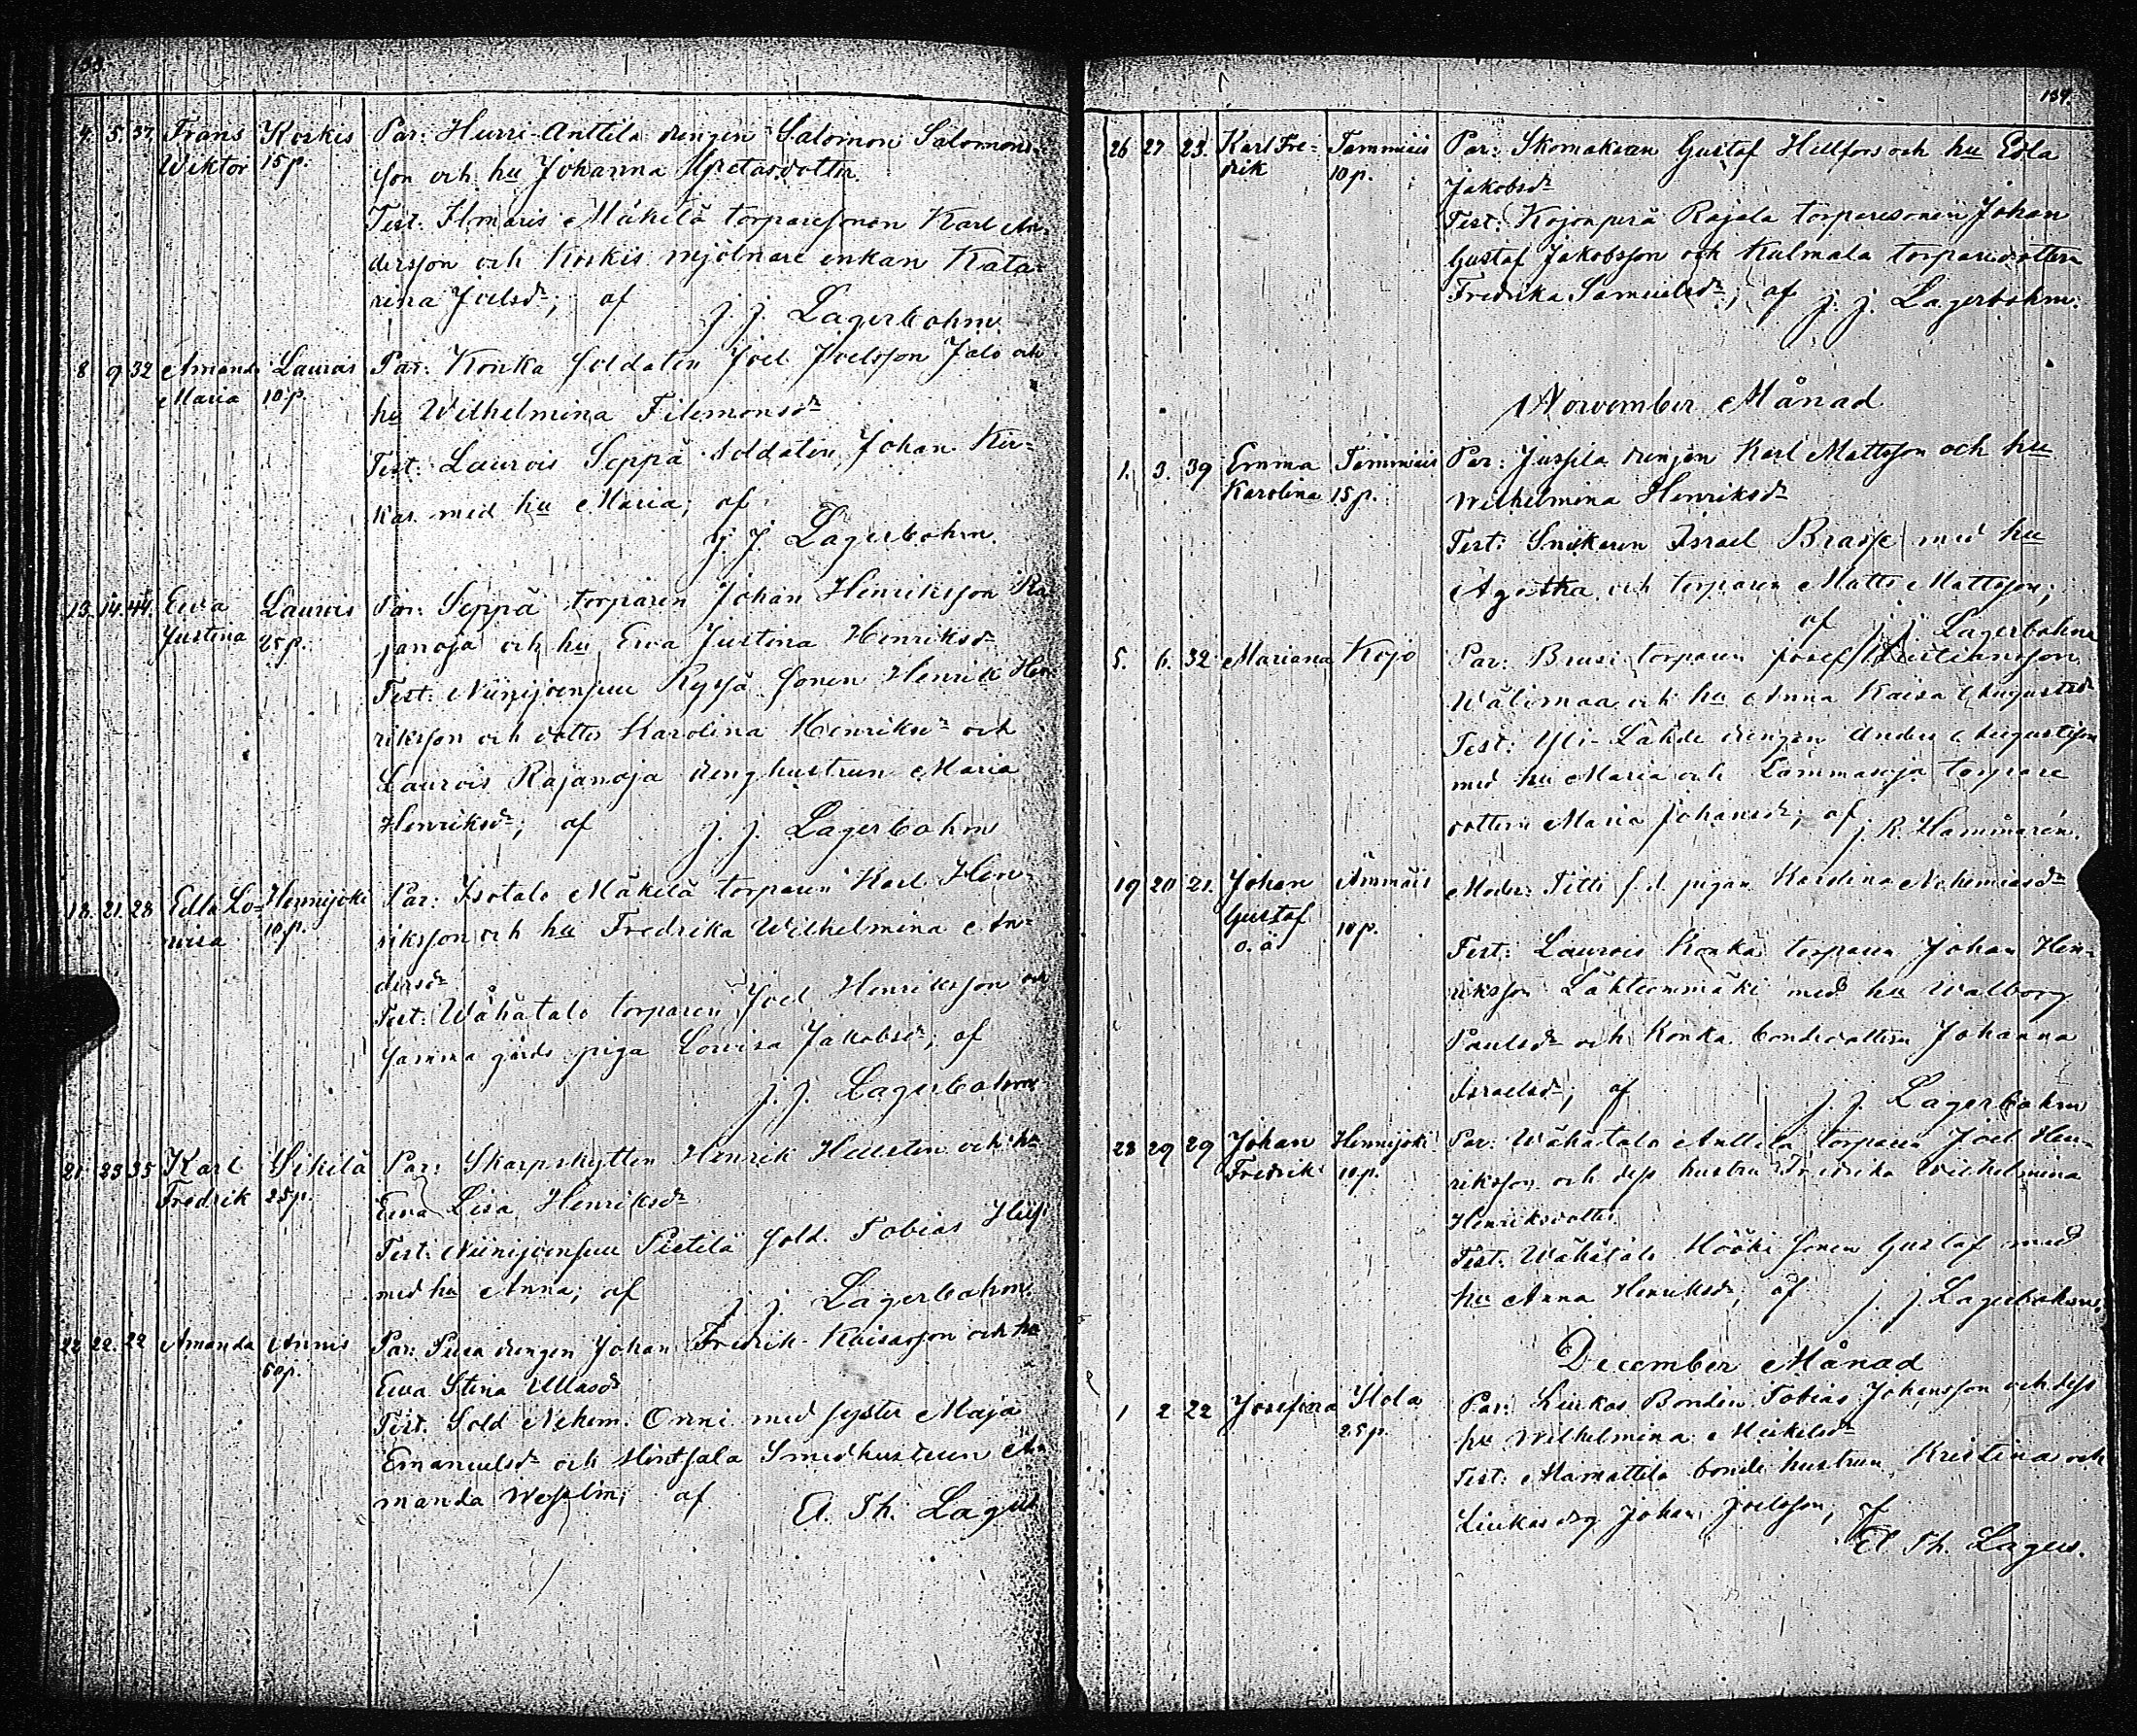 4. 5. 37. Frans Koskis Par: Hurri-Anttila drengen Salomon Salomons-
Wiktor 15 p. son och hu Johanna Gretasdotter.
Test: Ilmaris Mäkelä torparesonen Karl An-
dersson och Koskis mjölnare enkan Kata-
rina Joelsdr; af J. J. Lagerbohm
8 9 32 Amanda Laurois Par: Konka soldaten Joel Joelsson Jalo och
Maria 10 p. hu Wilhelmina Filemonsdr
Test: Laurois Seppä soldaten Johan Kir-
kas med hu Maria; af
J. J. Lagerbohm.
13. 14. 44. Ewa Laurois Par: Seppä torparen Johan Henriksson Ra-
Justina 25 p. janoja och hu Ewa Justina Henriksdr
Test: Niinijoensuu Ryssä sonen Henrik Hen-
riksson och dotter Karolina Henriksdr och
Laurois Rajanoja dreng hustrun Maria
Henriksdr; af J. J. Lagerbohm
18. 21. 28 Edla Lo- Hennijoki Par: Isotalo Mäkelä torparen Karl Hen-
wisa 10 p. riksson och hu Fredrika Wilhelmina An-
dersdr
Test: Wähätalo torparen Joel Henriksson och
samma gårds piga Lowisa Jakobsdr; af
J. J. Lagerbohm
21. 23 35 Karl Sikilä Par: Skarpskytten Henrik Hellsten och hu
Fredrik 25 p. Ewa Lisa Henriksdr
Test: Niinijoensuu Pietilä sold. Tobias
med hu Anna; af J. J. Lagerbohm.
22 22. 22 Amanda Annis Par: drengen Johan Fredrik Kaisasson och hu
50 p. Ewa Stina Ullasdr
Test. Sold Nehem. Onni med syster Maja
Emanuelsdr och Hintsala Smedhustrun A-
manda Wesslin; af A. Th. Lagus
139.
26 27 23. Karl Fre- Tammiais Par: Skomakaren Gustaf Hellfors och hu Edla
drik 10 p. Jakobsdr
Test: Kojonperä Rajala torparesonen Johan
Gustaf Jakobsson och Kulmala torparedottern
Fredrika Samuelsdr; af J. J. Lagerbohm.
November Månad
1. 3. 39 Emma Tammiais Par: Jussila drengen Karl Mattsson och hu
Karolina 15 p. Wilhelmina Henriksdr
Test: Snikaren Israel Brasse med hu
Agatha och torparen Matts Mattsson;
af J. J. Lagerbohm
5. 6. 32 Mariana Kojo Par: Brusi torparen Josef Kristiansson
Wälimaa och hu Anna Kaisa Augustsdr
Test: Yli-Lähde drengen Anders Augustsson
med hu Maria och Lammasoja torpare
dottern Maria Johansdr; af J. R. Hammarén.
19 20 21. Johan Ämmäis Moder: Titti f. d. pigan Karolina Nehemiasdr
Gustaf
o. ä 10 p. Test: Laurois Konka torparen Johan Hen-
riksson Lähteenmäki med hu Walborg
Paulsdr och Konka bondedottern Johanna
Israelsdr; af J. J. Lagerbohm
28 29 29 Johan Hennijoki Par: Wähätalo Anttila torparen Joel Hen-
Fredrik 10 p. riksson och dess hustru Fredrika Wilhelmina
Henriksdotter.
Test: Wähätalo Hööki sonen Gustaf med
hu Anna Henriksdr; af J. J. Lagerbohm.
December Månad
1 2 22 Josefina Ylola Par: Liukas Bonden Tobias Johansson och dess
25 p. hu Wilhelmina Mickelsdr
Test: Mamattila bonde hustrun Kristina och
Liukas drg Johan Joelsson; af
A. Th. Lagus.